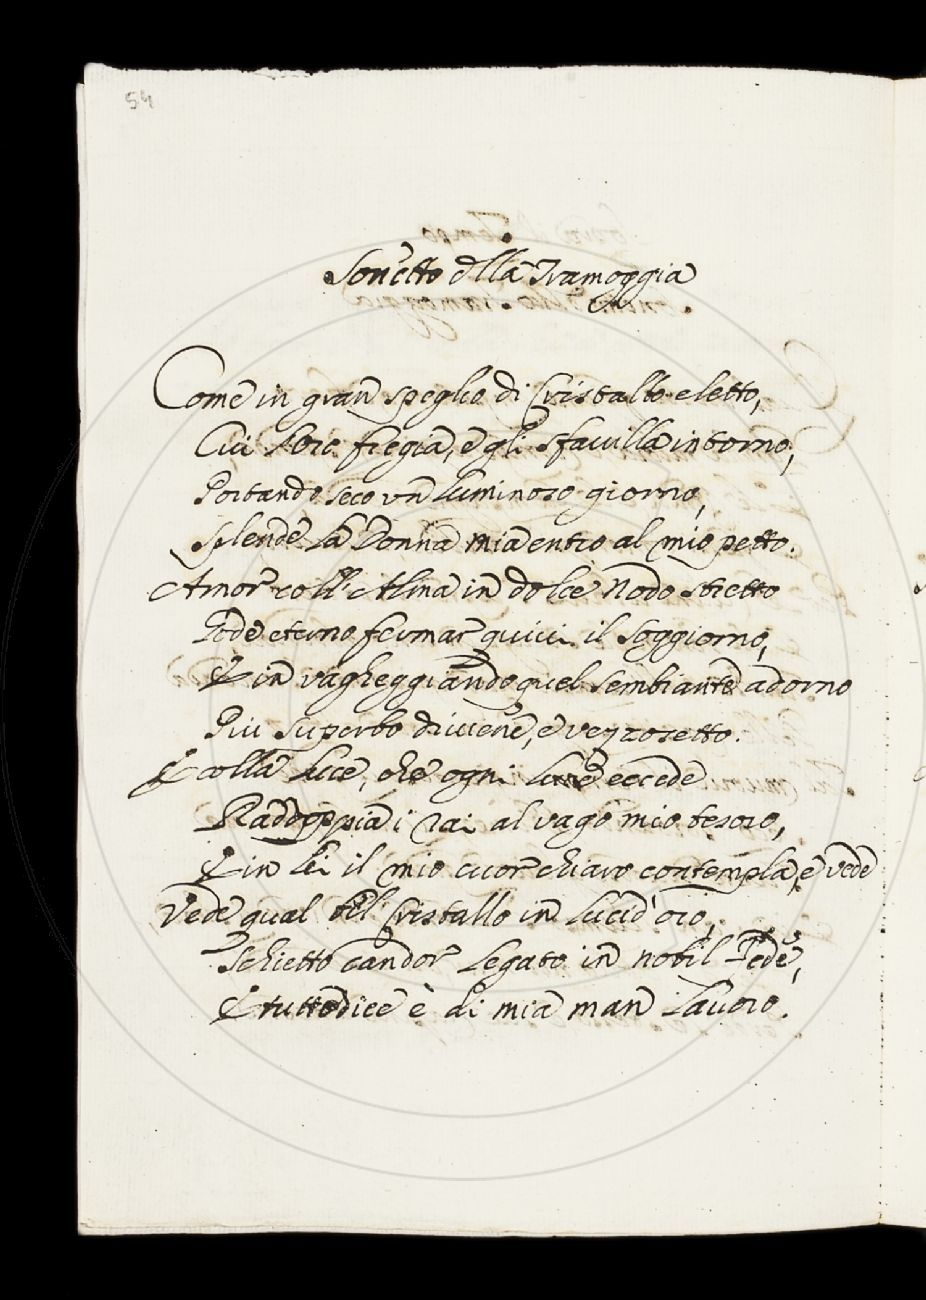 54
Sonetto dlla Tramoggia
Come in gran speglio di Cristallo eletto,
Cui Ebro fregia, e gli sfauilla intorno,
Portando seco vn Luminoso giorno,
Splende La Donna mia entro al mio petto.
Amor coll' Alma in dolce Nodo stretto
Gode eterno fermar quiui il soggiorno,
E in vagheggiando quel sembiante adorno
Piu superbo diuiene, e vezzosetto.
E colla Luce, che ogni Lume eccede
Raddoppia i rai al vago mio tesoro,
E in Lei il mio cuor chiaro contempla, e vede
Vede qual bel Cristallo in Lucid'oro,
Schietto candor Legato in nobil Fede,
E tutto dice è di mia man Lauoro.